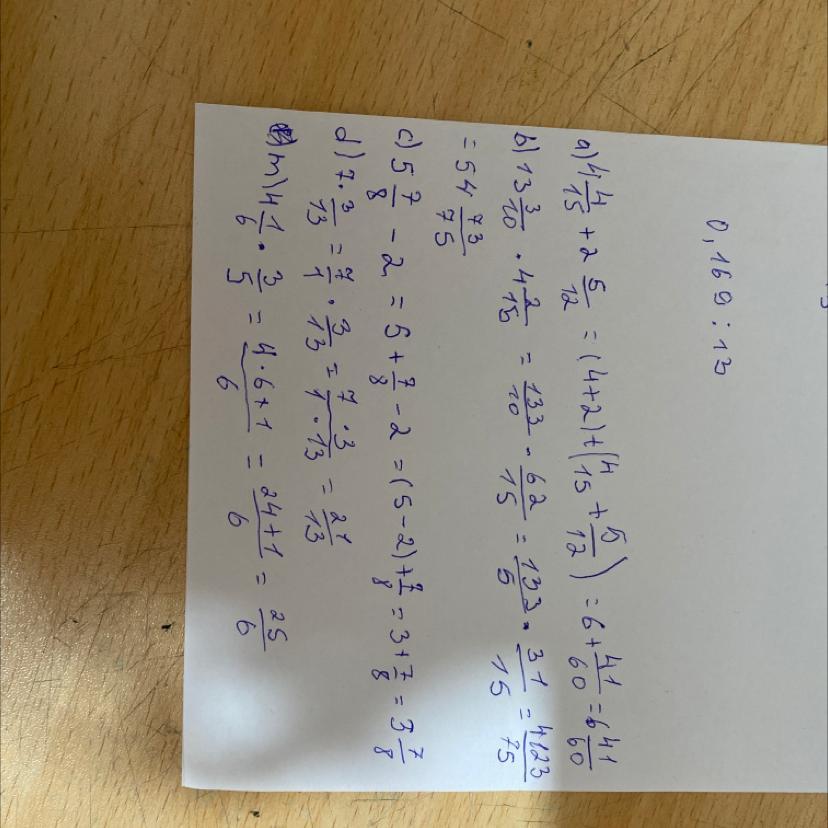 0,169:13
a) 4 4/15 + 2 5/12 = (4+2)+(4/15 + 5/12) = 6 + 41/60 = 6 41/60
b) 13 3/10 · 4 2/15 = 133/10 · 62/15 = 133/5 · 31/15 = 4123/75
= 54 73/75
c) 5 7/8 - 2 = 5 + 7/8 - 2 = (5-2) + 7/8 = 3 + 7/8 = 3 7/8
d) 7 · 3/13 = 7/1 · 3/13 = 7·3/1·13 = 21/13
m) 4 1/6 · 3/5 = 4·6+1/6 = 24+1/6 = 25/6